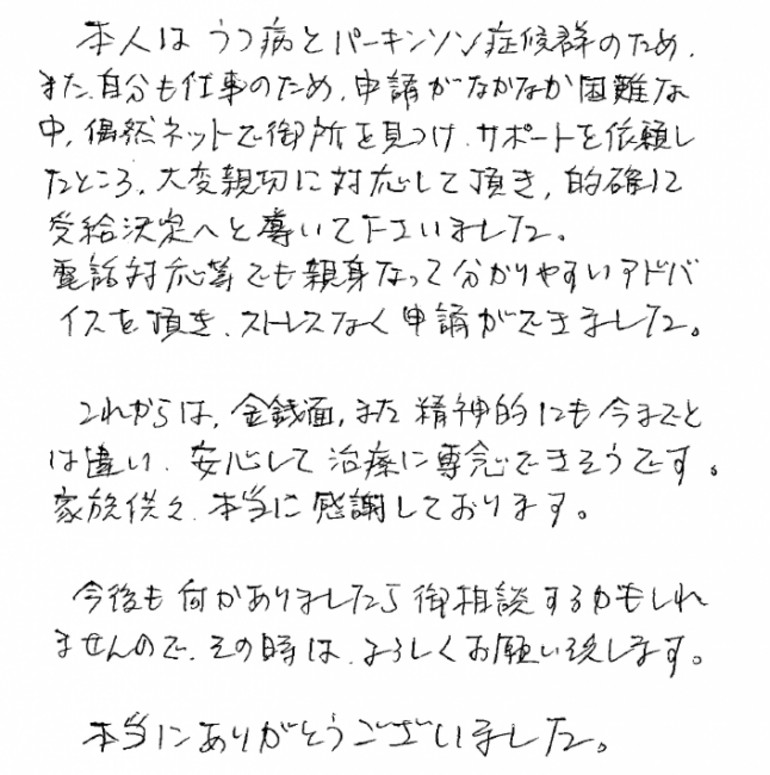 本人はうつ病とパーキンソン症候群のため、
また、自分も仕事のため、申請がなかなか困難な
中、偶然ネットで御所を見つけ、サポートを依頼し
たところ、大変親切に対応して頂き、的確に
受給決定へと導いて下さいました。
電話対応等でも親身なって分かりやすいアドバ
イスを頂き、ストレスなく申請ができました。
これからは、金銭面、また精神的にも今までと
は違い、安心して治療に専念できそうです。
家族供々、本当に感謝しております。
今後も何かありましたら御相談するかもしれ
ませんので、その時は、よろしくお願い致します。
本当にありがとうございました。